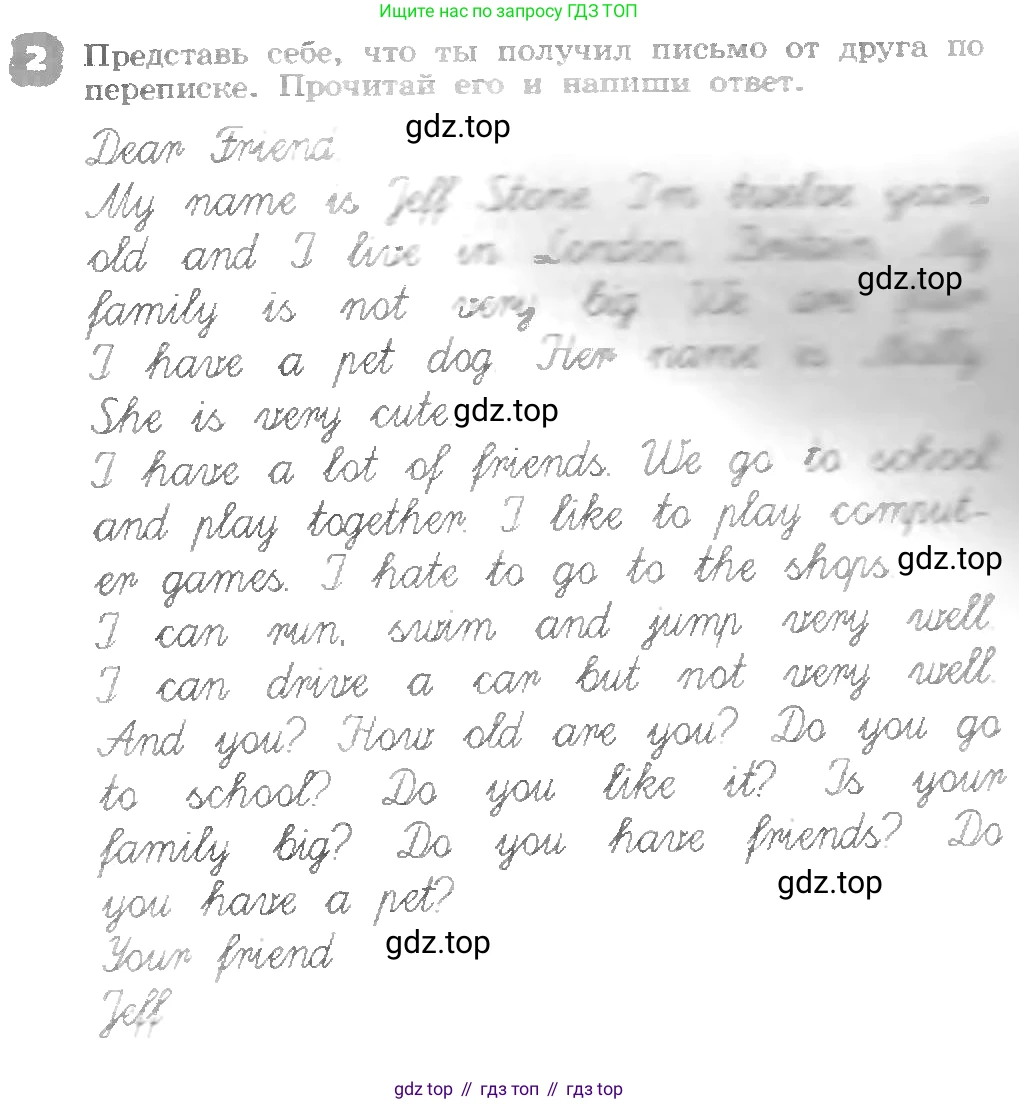 Ищите нас по запросу ГДЗ ТОП
2 Представь себе, что ты получил письмо от друга по
переписке. Прочитай его и напиши ответ.
gdz.top
Dear Friend
My name is Jeff Stone I'm twelve years
old and I live in London Britain My
gdz.top
family is not very big We are four
I have a pet dog Her name is
She is very cute
gdz.top
I have a lot of friends. We go to school
and play together. I like to play comput-
er games. I hate to go to the shops
gdz.top
I can run, swim and jump very well.
I can drive a car but not very well.
And you? How old are you? Do you go
to school? Do you like it? Is your
family big? Do you have friends? Do
gdz.top
you have a pet?
Your friend
gdz.top
Jeff
gdz top // гдз топ // gdz top